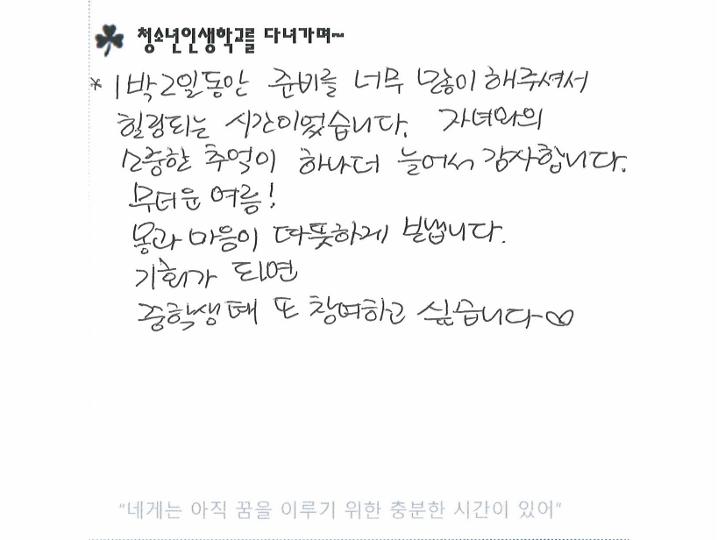 청소년인생학교를 다녀가며~
* 1박2일동안 준비를 너무 많이 해주셔서
힐링되는 시간이었습니다. 자녀와의
소중한 추억이 하나더 늘어서 감사합니다.
무더운 여름!
몸과 마음이 따뜻하게 보냅니다.
기회가 되면
중학생 때 또 참여하고 싶습니다♡
"네게는 아직 꿈을 이루기 위한 충분한 시간이 있어"